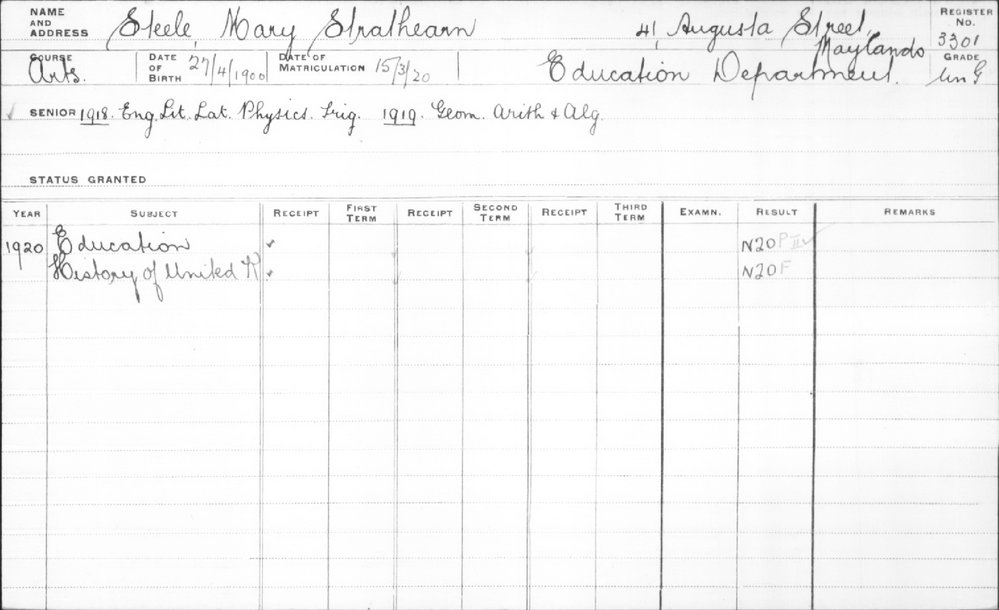 NAME AND ADDRESS Steele, Mary Strathearn 41, Augusta Street, Maylands REGISTER No. 3301
COURSE Arts. DATE OF BIRTH 27/4/1900 DATE OF MATRICULATION 15/3/20 Education Department. GRADE Un G
SENIOR 1918. Eng. Lit. Lat. Physics. Trig. 1919. Geom. Arith & Alg.
STATUS GRANTED
YEAR SUBJECT RECEIPT FIRST TERM RECEIPT SECOND TERM RECEIPT THIRD TERM EXAMN. RESULT REMARKS
1920 Education N20 P III
History of United K. N20 F